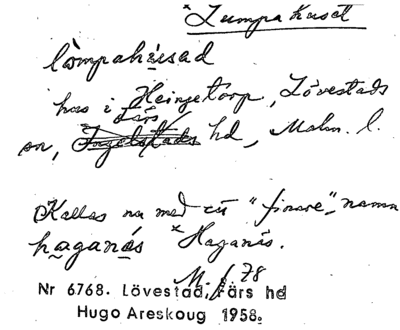 *Lumpahuset
lòmpahu̇sad
hus i Heingetorp, Lövestads
Färs
sn, Ingelstads hd, Malm. l.
Kallas nu med ett "finare" namn
haganäs *Haganäs.
Nr 6768. Lövestad, Färs hd
Hugo Areskoug 1958.